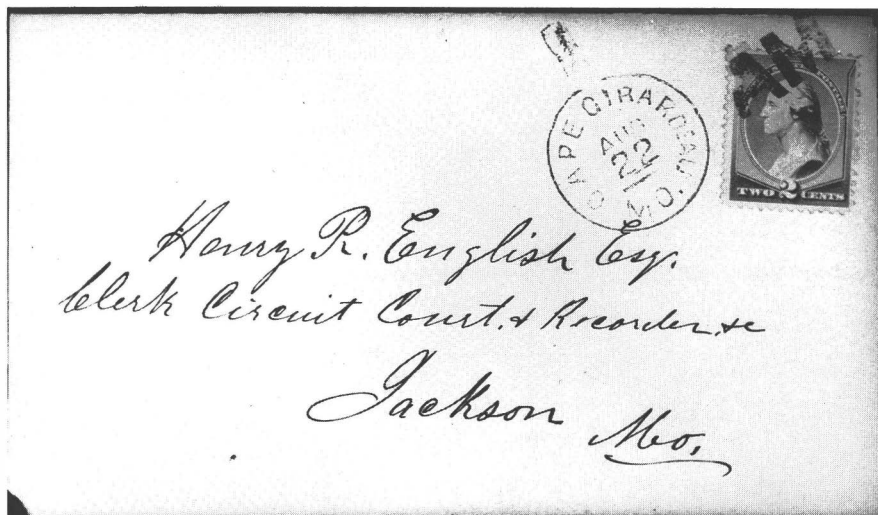 CAPE GIRARDEAU, MO.
AUG
22
TWO 2 CENTS
Henry R. English Esq.
Clerk Circuit Court, & Recorder, &c
Jackson Mo.